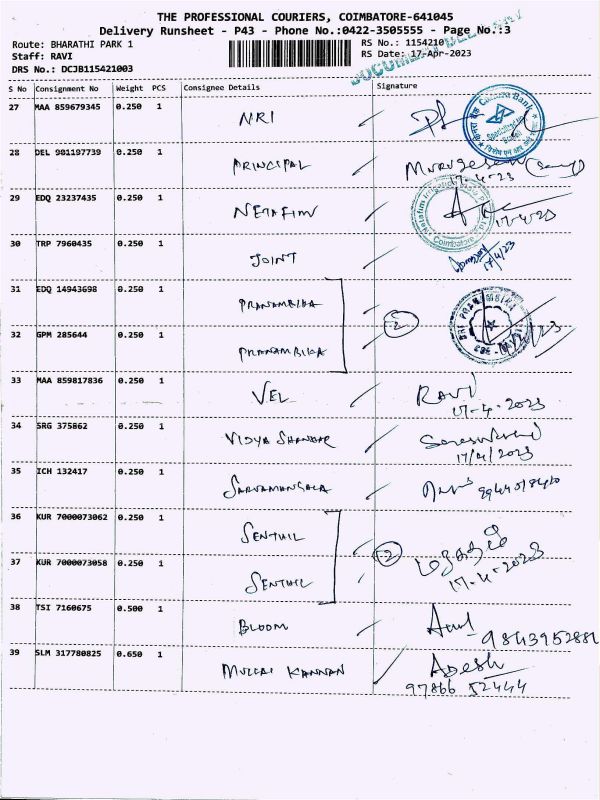 THE PROFESSIONAL COURIERS, COIMBATORE-641045
Delivery Runsheet - P43 - Phone No.:0422-3505555 - Page No.:3
Route: BHARATHI PARK 1
RS No.: 1154210
Staff: RAVI
RS Date: 17-Apr-2023
DRS No.: DCJB115421003
S No Consignment No Weight PCS Consignee Details Signature
27 MAA 859679345 0.250 1 NRI
Canara Bank
28 DEL 901197739 0.250 1 PRINCIPAL Murugesan
17-4-23
29 EDQ 23237435 0.250 1 NETAFIM 17-4-23
Coimbatore
30 TRP 7960435 0.250 1 JOINT 17/4/23
31 EDQ 14943698 0.250 1 PRANAMBIKA
2
SRI PRANAMBIKA
32 GPM 285644 0.250 1 PRANAMBIKA
33 MAA 859817836 0.250 1 VEL RAVI
17-4-2023
34 SRG 375862 0.250 1 VIDYA SHANKAR
17/4/2023
35 ICH 132417 0.250 1 SARVAMANGALA
36 KUR 7000073062 0.250 1 SENTHIL
2
37 KUR 7000073058 0.250 1 SENTHIL 17-4-2023
38 TSI 7160675 0.500 1 BLOOM Arul
39 SLM 317780825 0.650 1 MULLAI KANNAN ADESH
97866 52444